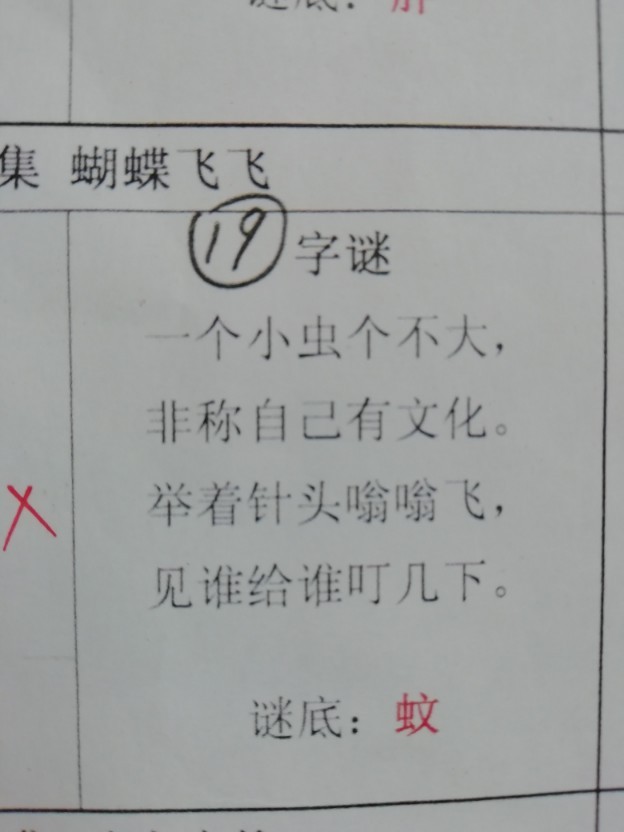 谜底：
集 蝴蝶飞飞
19 字谜
一个小虫个不大，
非称自己有文化。
举着针头嗡嗡飞，
见谁给谁叮几下。
X
谜底：蚊